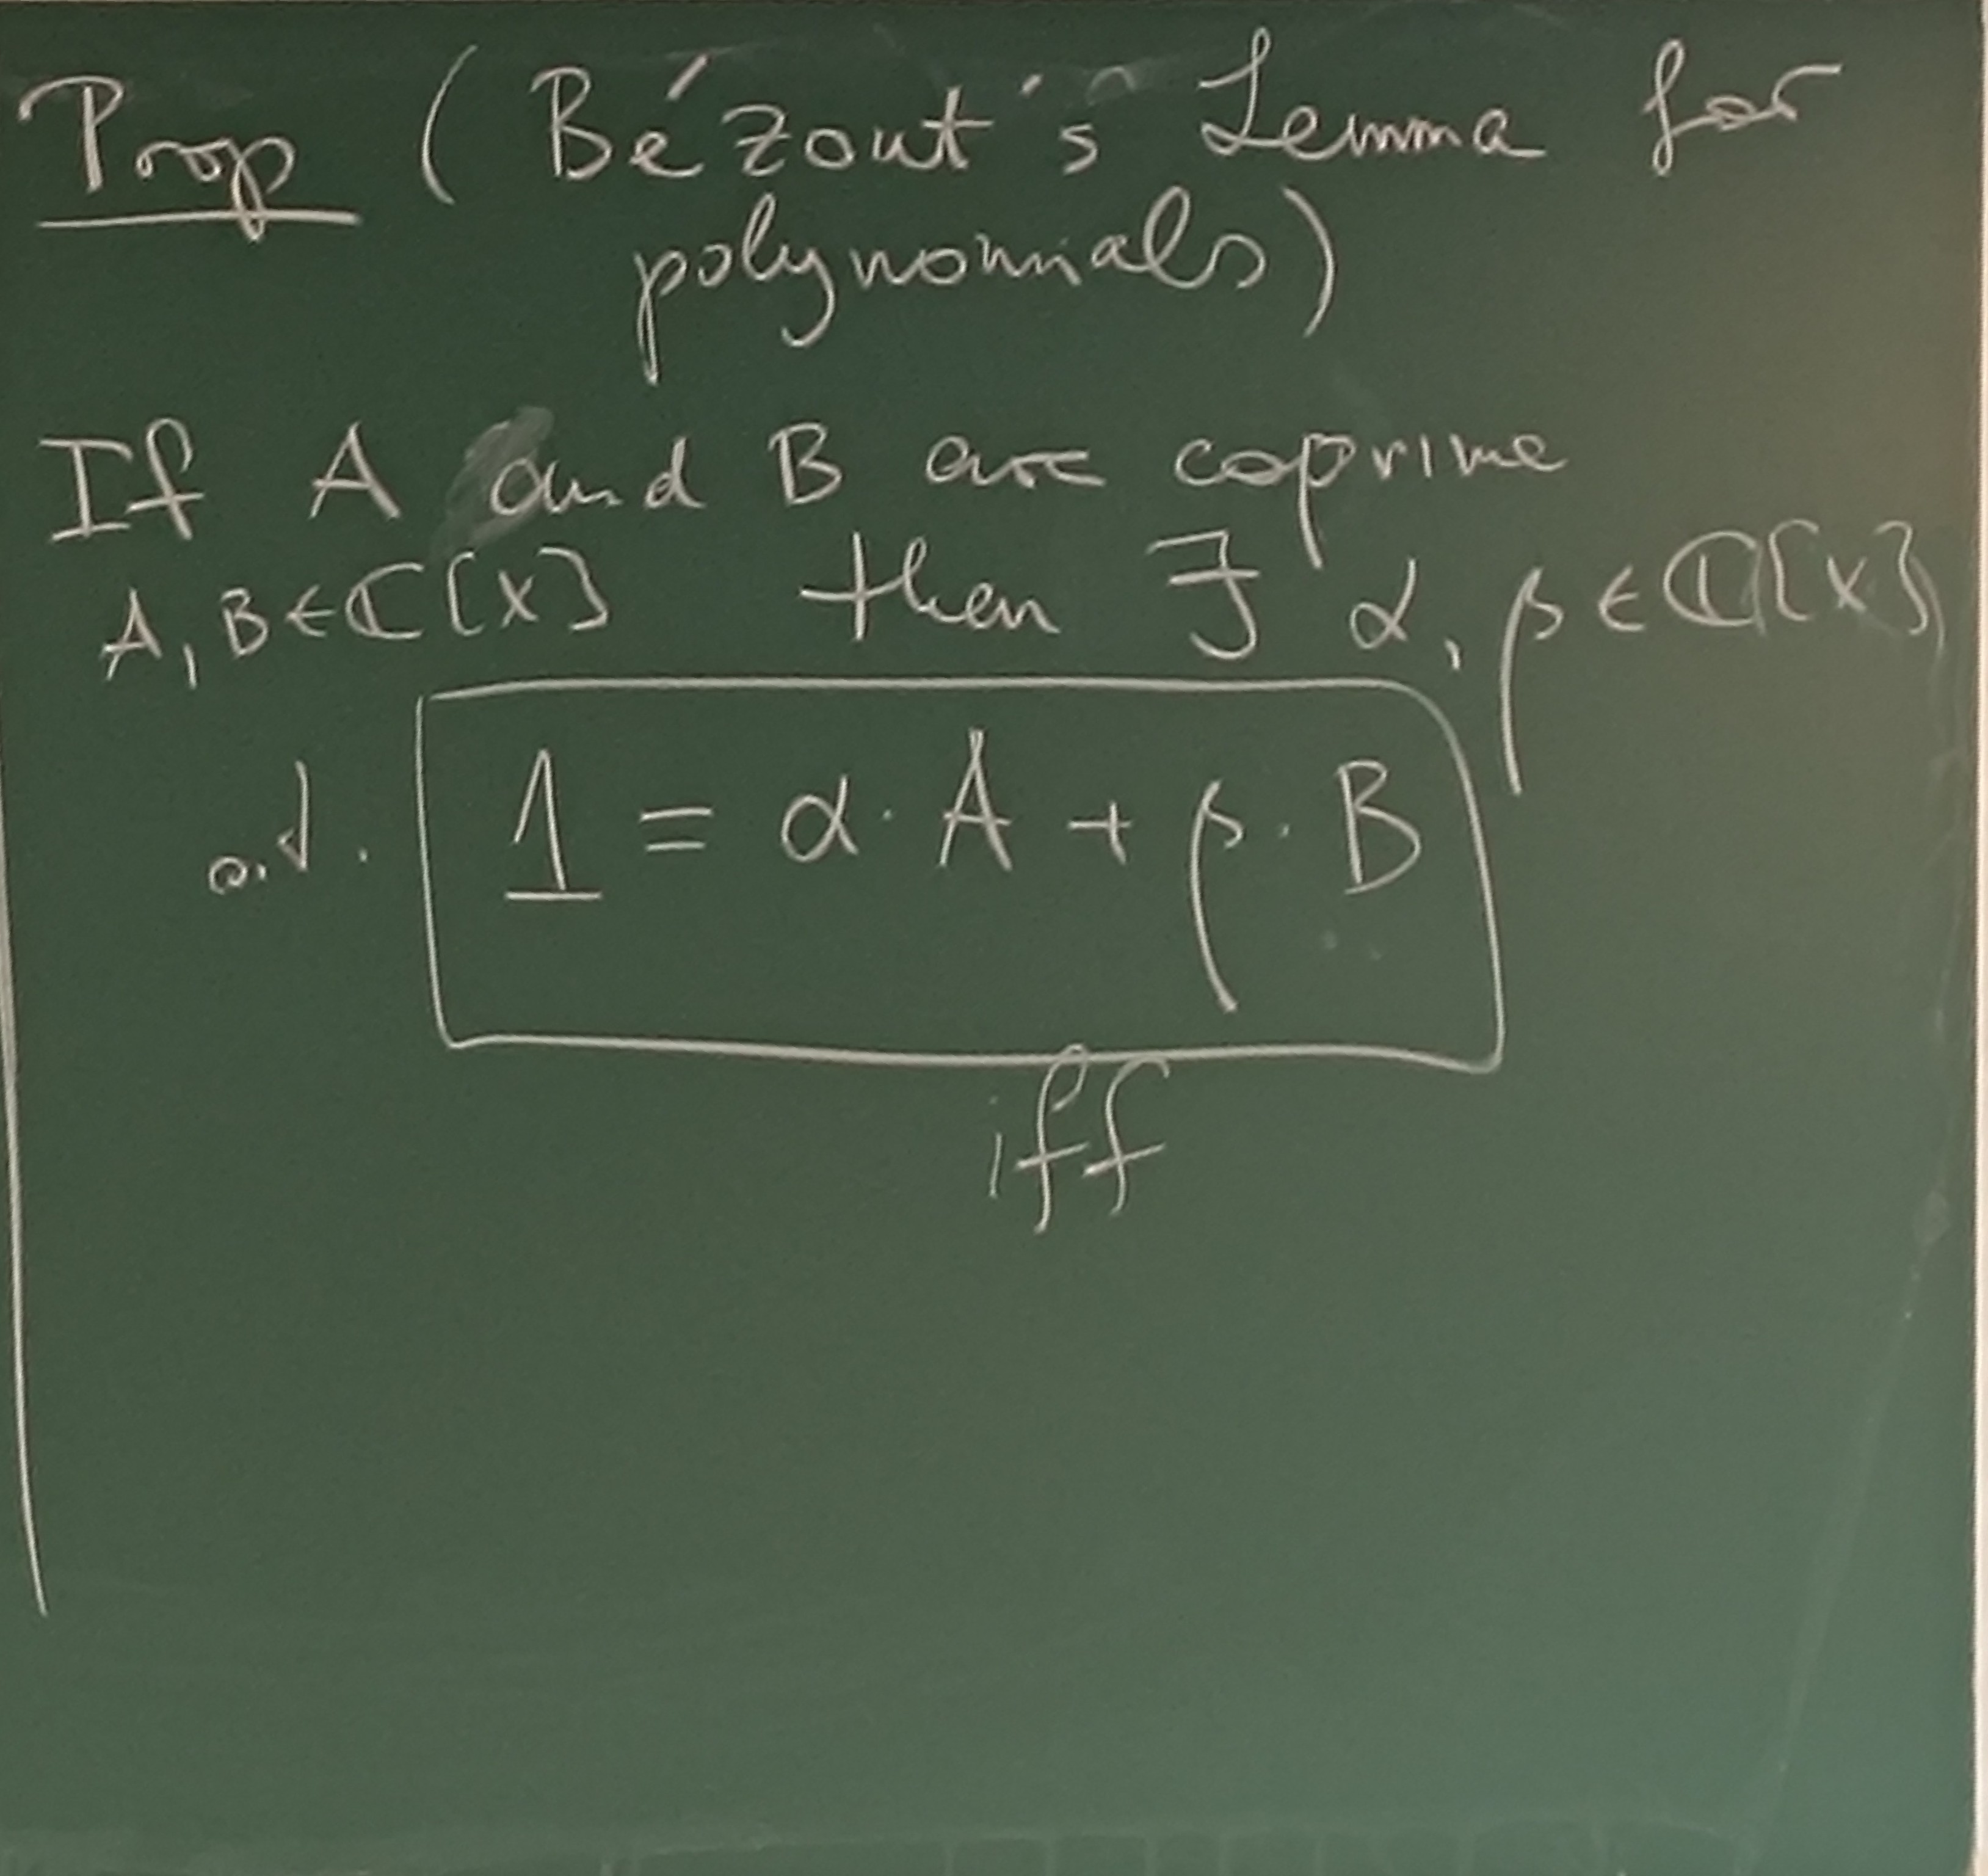 Prop (Bézout's Lemma for
polynomials)
If A and B are coprime
A, B ∈ ℂ[X] then ∃ α, β ∈ ℂ[X]
1 = α · A + β · B
iff